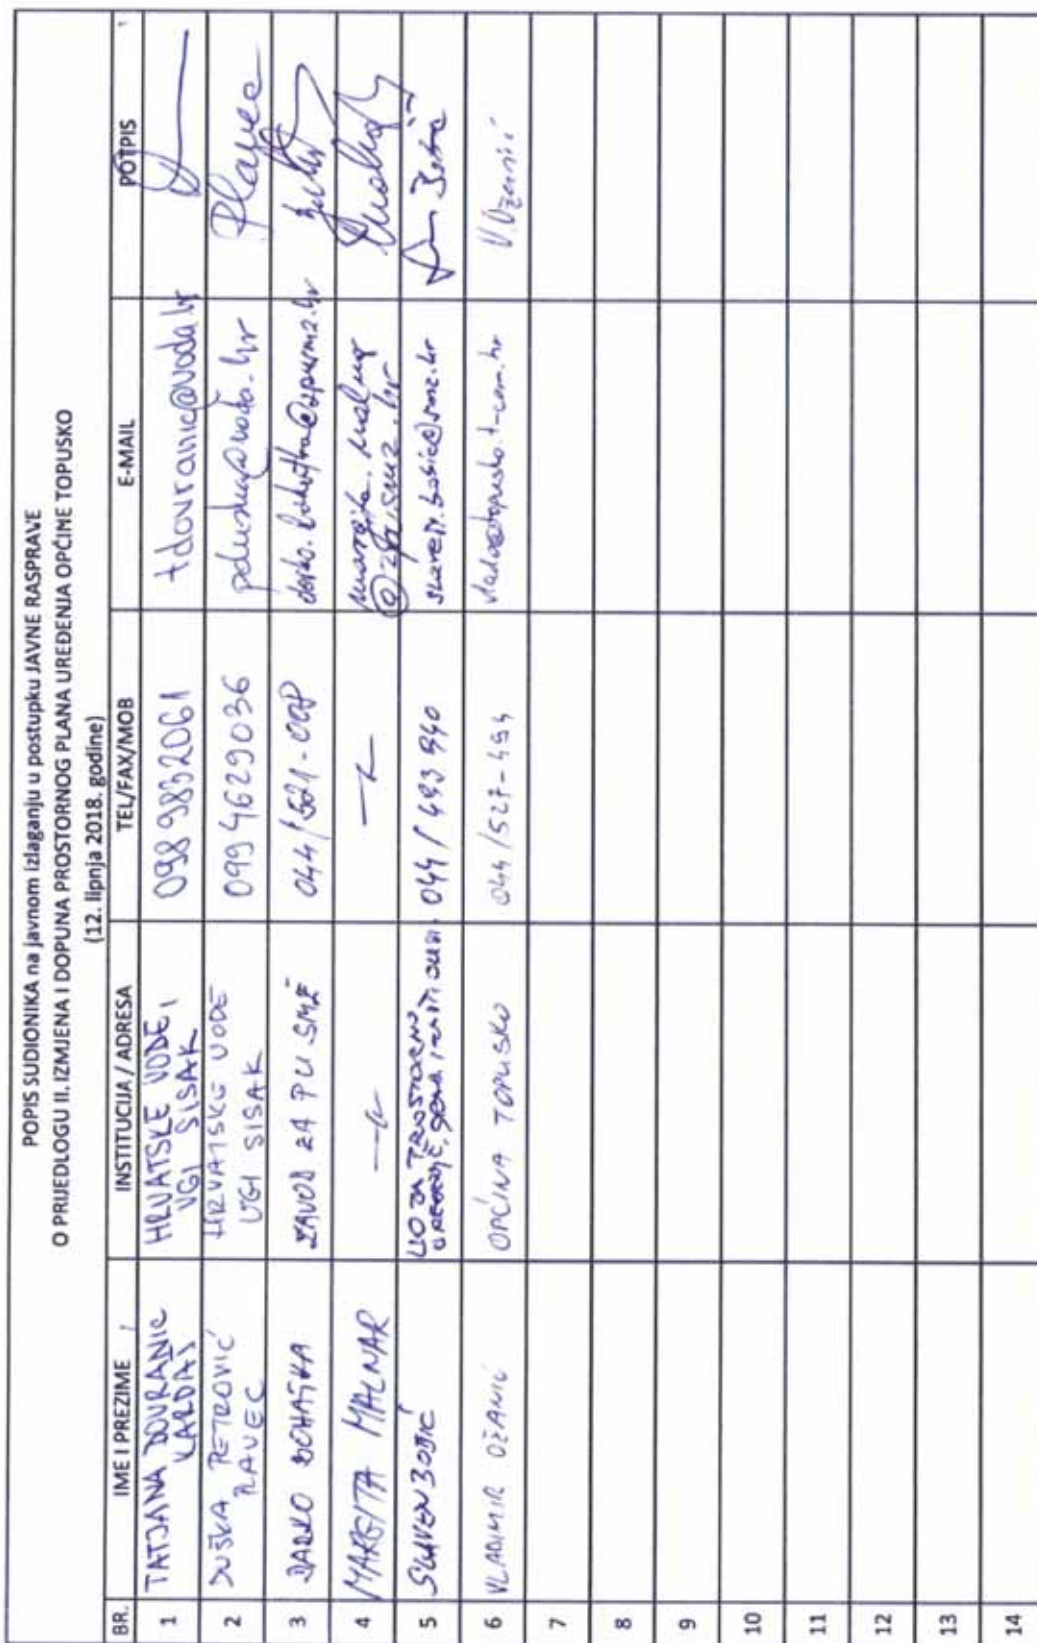 POPIS SUDIONIKA na javnom izlaganju u postupku JAVNE RASPRAVE
O PRIJEDLOGU II. IZMJENA I DOPUNA PROSTORNOG PLANA UREĐENJA OPĆINE TOPUSKO
(12. lipnja 2018. godine)
BR. IME I PREZIME INSTITUCIJA / ADRESA TEL/FAX/MOB E-MAIL POTPIS
1 TATJANA DOVRANIĆ KARDAŠ HRVATSKE VODE, VGI SISAK 098 9832061 tdovranic@voda.hr
2 DUŠKA PETROVIĆ PLAVEC HRVATSKE VODE VGI SISAK 099 4629036 pduska@voda.hr Plavec
3 DARKO ZAVOD ZA PU SMŽ 044/521-008
4 MARGITA MALNAR
5 SLAVEN BOBIĆ UO ZA PROSTORNO 044/493 940 slaven.bobic@smz.hr
6 VLADIMIR OŽANIĆ OPĆINA TOPUSKO 044/527-494 vlado@topusko.t-com.hr V. Ožanić
7
8
9
10
11
12
13
14